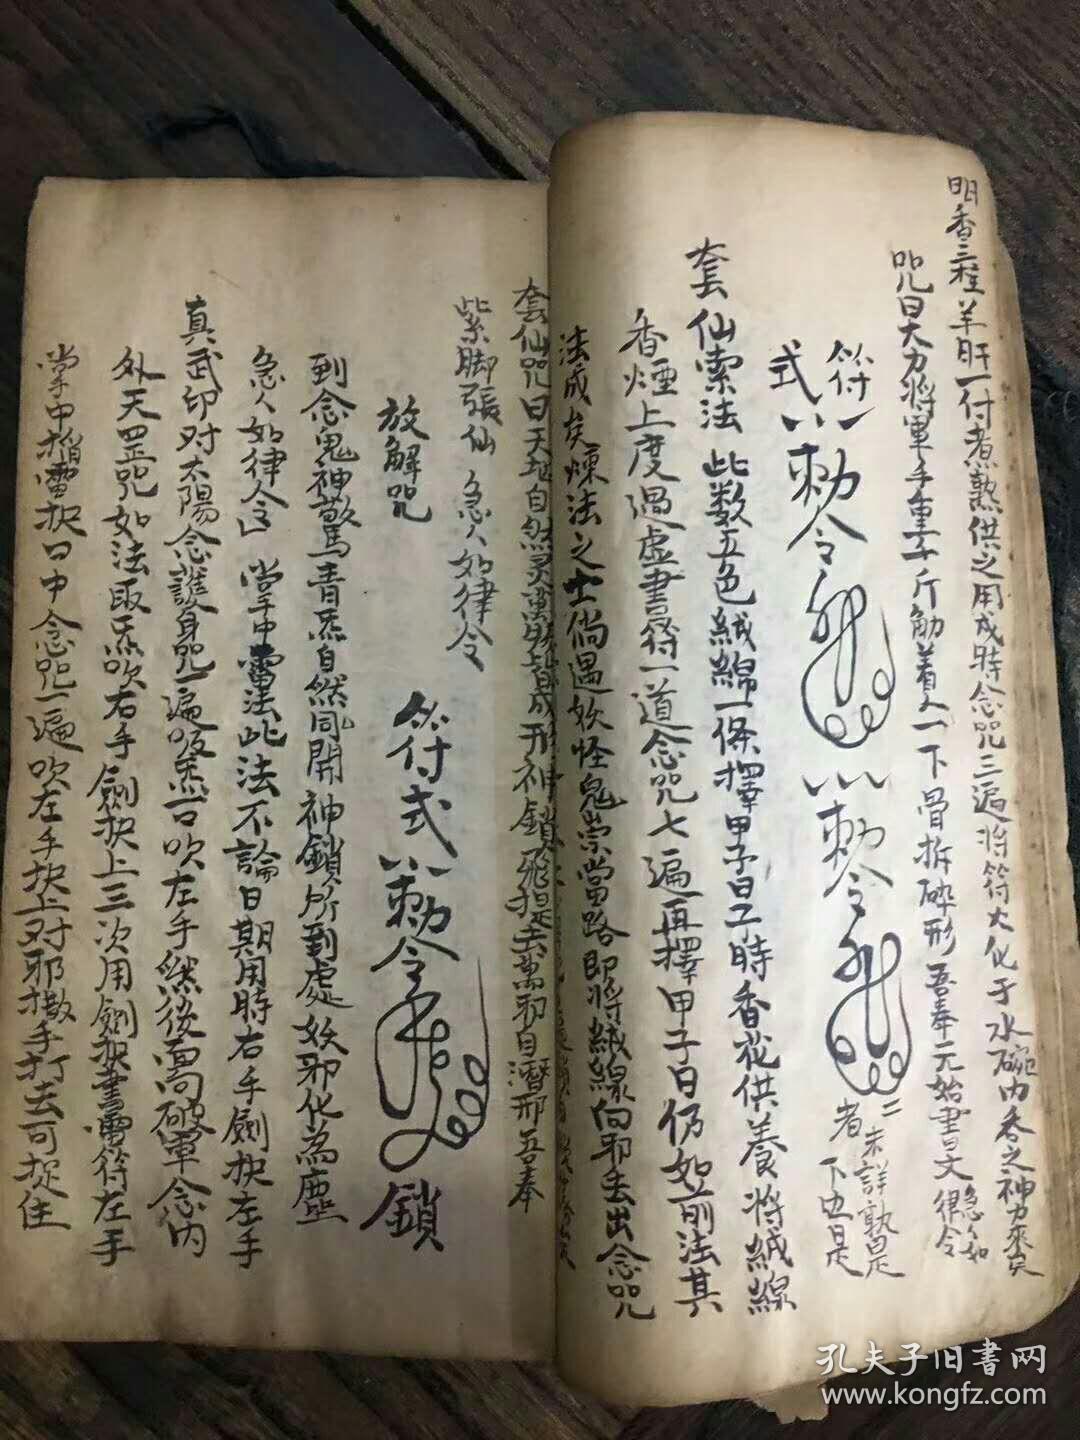 明香三炷羊肝一付煮熟供之用成時念咒三遍将符火化于水碗内吞之神力來矣
咒曰大力将軍手重千斤觔着人一下骨拆碎形吾奉元始書旻急々如
律令
符
式
敕令
敕令
二未詳孰是
者下边是
套仙索法此数五色絨線一條擇甲子日子時香花供養将絨線
香煙上度過虚書符一道念咒七遍再擇甲子日仍如前法其
法成矣煉法之士倘遇妖怪鬼祟當路即将絨線向邪去出念咒
套仙咒曰天地自然灵萬物皆成形神鎖飛捉去萬邪自潛形吾奉
紫脚張仙急々如律令
放解咒
符式
敕令
鎖
到念鬼神驚青炁自然同開神鎖所到處妖邪化為塵
急々如律令
掌中雷法此法不論日期用時右手劍抉左手
真武印对太陽念護身咒一遍吸炁一口吹左手然後面向破軍念内
外天罡咒如法取炁吹右手劍抉上三次用劍抉書雷符左手
掌中搯雷抉口中念咒一遍吹左手抉上对邪撒手打去可捉住
孔夫子旧書网
www.kongfz.com